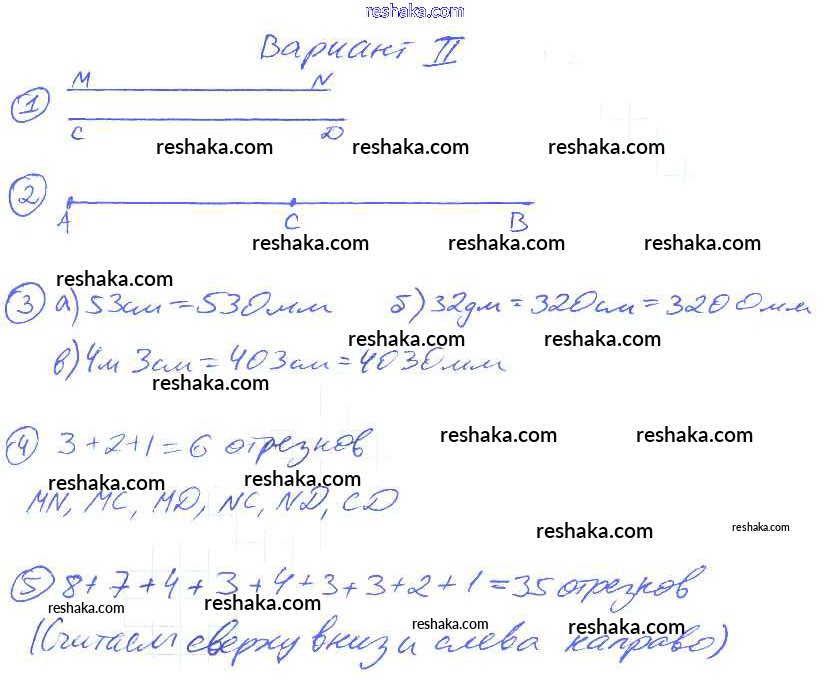 reshaka.com
Вариант II
M N
1
C D
reshaka.com reshaka.com reshaka.com
2
A C B
reshaka.com reshaka.com reshaka.com
reshaka.com
3 а) 53см = 530мм б) 32дм = 320см = 3200мм
reshaka.com reshaka.com
в) 4м 3см = 403см = 4030мм
reshaka.com
4 3+2+1=6 отрезков
reshaka.com reshaka.com
reshaka.com reshaka.com
MN, MC, MD, NC, ND, CD
reshaka.com reshaka.com
5 8+7+4+3+4+3+3+2+1=35 отрезков
reshaka.com reshaka.com
reshaka.com reshaka.com
(Считаем сверху вниз и слева направо)